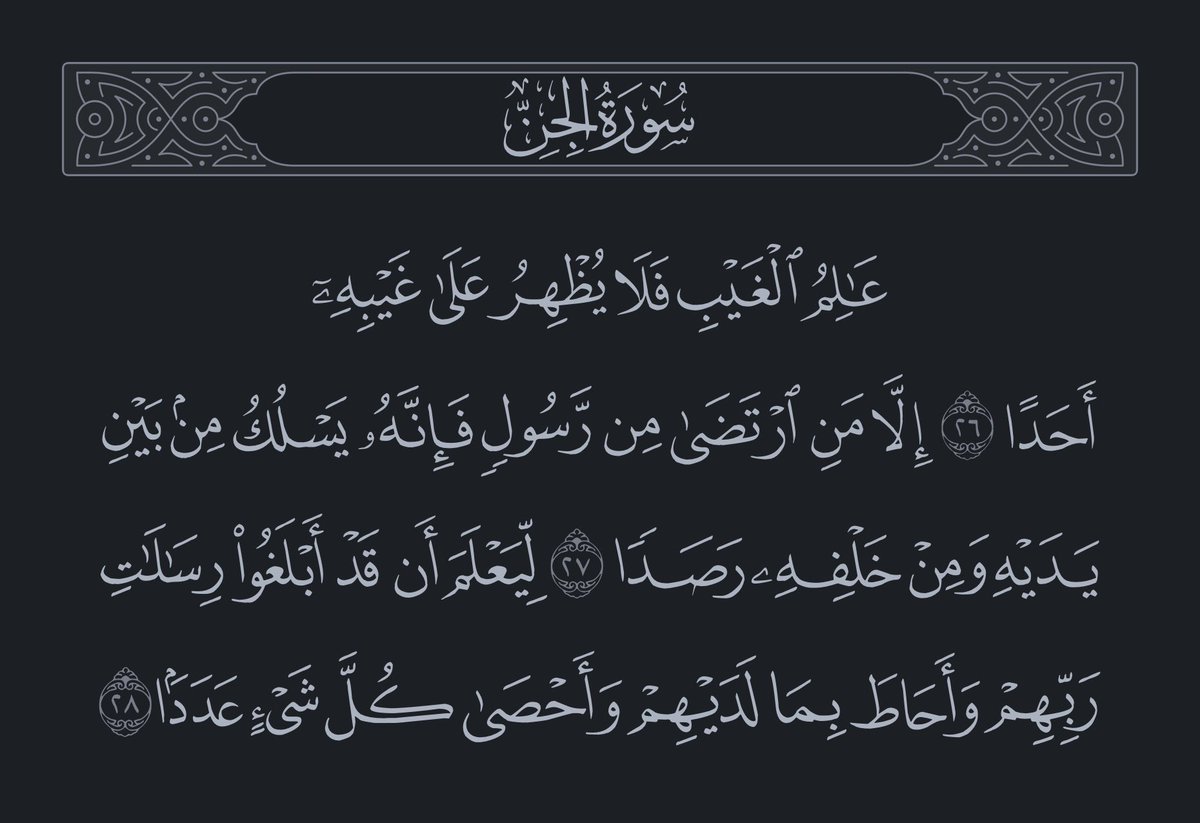 سُورَةُ الجِنِّ
عَـٰلِمُ ٱلْغَيْبِ فَلَا يُظْهِرُ عَلَىٰ غَيْبِهِۦٓ
أَحَدًا ٢٦ إِلَّا مَنِ ٱرْتَضَىٰ مِن رَّسُولٍ فَإِنَّهُۥ يَسْلُكُ مِنۢ بَيْنِ
يَدَيْهِ وَمِنْ خَلْفِهِۦ رَصَدًا ٢٧ لِّيَعْلَمَ أَن قَدْ أَبْلَغُوا۟ رِسَـٰلَـٰتِ
رَبِّهِمْ وَأَحَاطَ بِمَا لَدَيْهِمْ وَأَحْصَىٰ كُلَّ شَىْءٍ عَدَدَۢا ٢٨